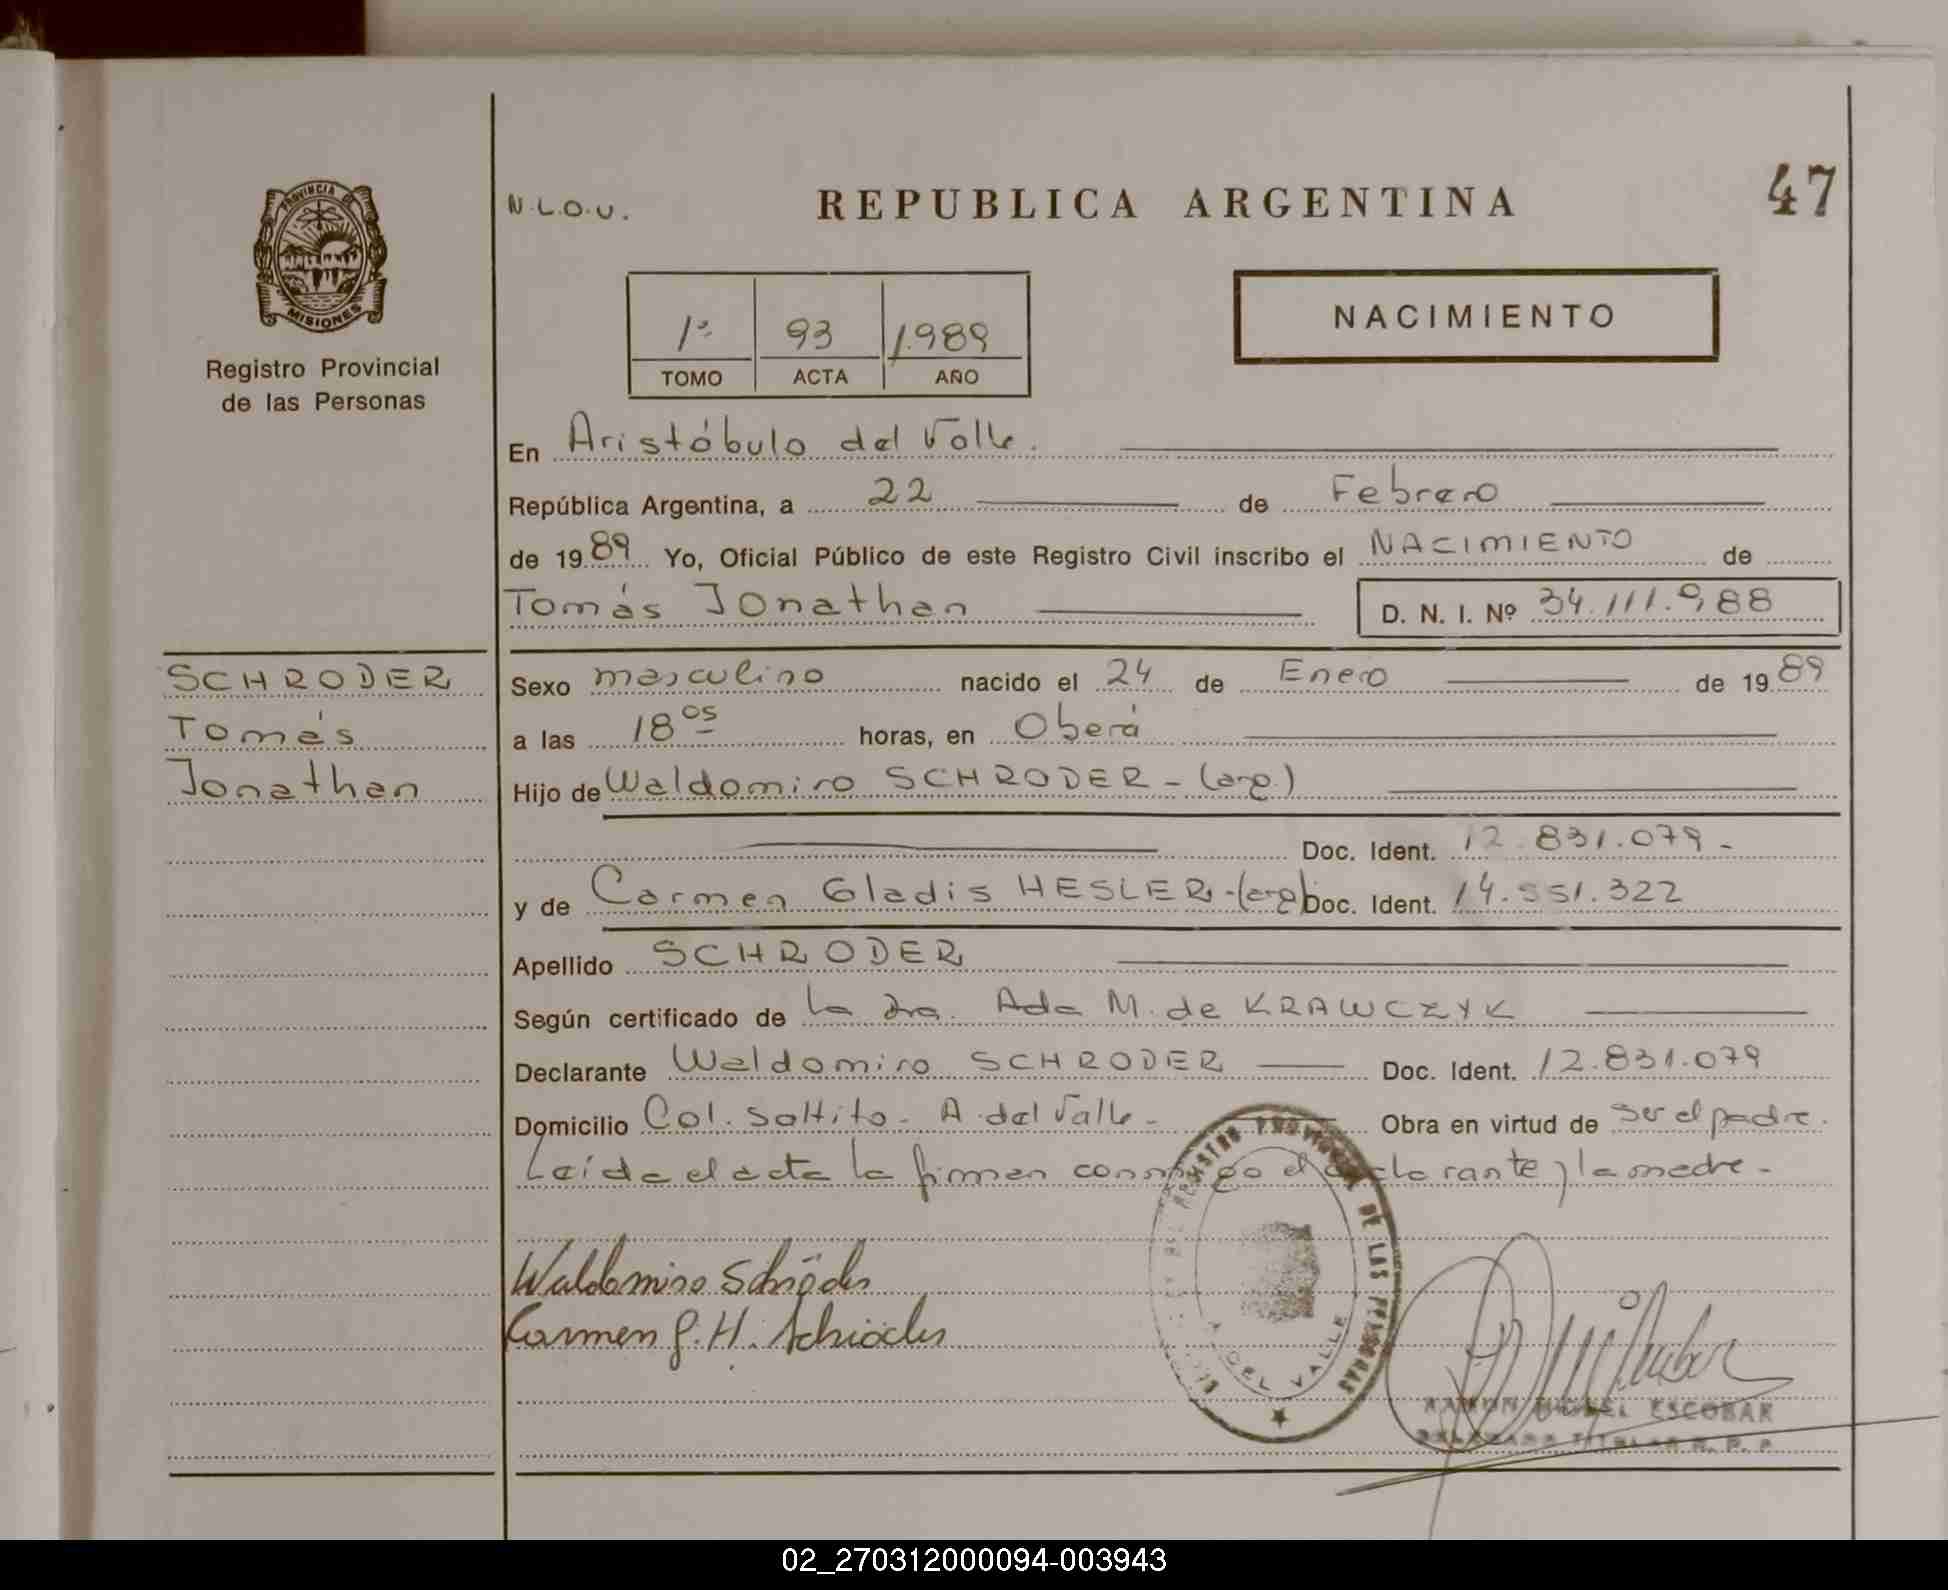 PROVINCIA DE
MISIONES
Registro Provincial
de las Personas
N.L.O.U.
REPUBLICA ARGENTINA
47
1º 93 1.989
TOMO ACTA AÑO
NACIMIENTO
En Aristóbulo del Valle.
República Argentina, a 22 de Febrero
de 1989 Yo, Oficial Público de este Registro Civil inscribo el NACIMIENTO de
Tomás Jonathan D. N. I. Nº 34.111.988
SCHRODER
Tomás
Jonathan
Sexo masculino nacido el 24 de Enero de 1989
a las 18 05 horas, en Oberá
Hijo de Waldomiro SCHRODER - (arg.)
Doc. Ident. 12.831.079 -
y de Carmen Gladis HESLER - (arg) Doc. Ident. 14.551.322
Apellido SCHRODER
Según certificado de la Dra. Ada M. de KRAWCZYK
Declarante Waldomiro SCHRODER Doc. Ident. 12.831.079
Domicilio Col. Saltito - A. del Valle - Obra en virtud de ser el padre.
Leída el acta la firman conmigo el declarante y la madre -
Waldomiro Schröder
Carmen G. H. Schröder
REGISTRO PROVINCIAL DE LAS PERSONAS
A. DEL VALLE
RAMON MIGUEL ESCOBAR
DELEGADO TITULAR R. P. P.
02_270312000094-003943